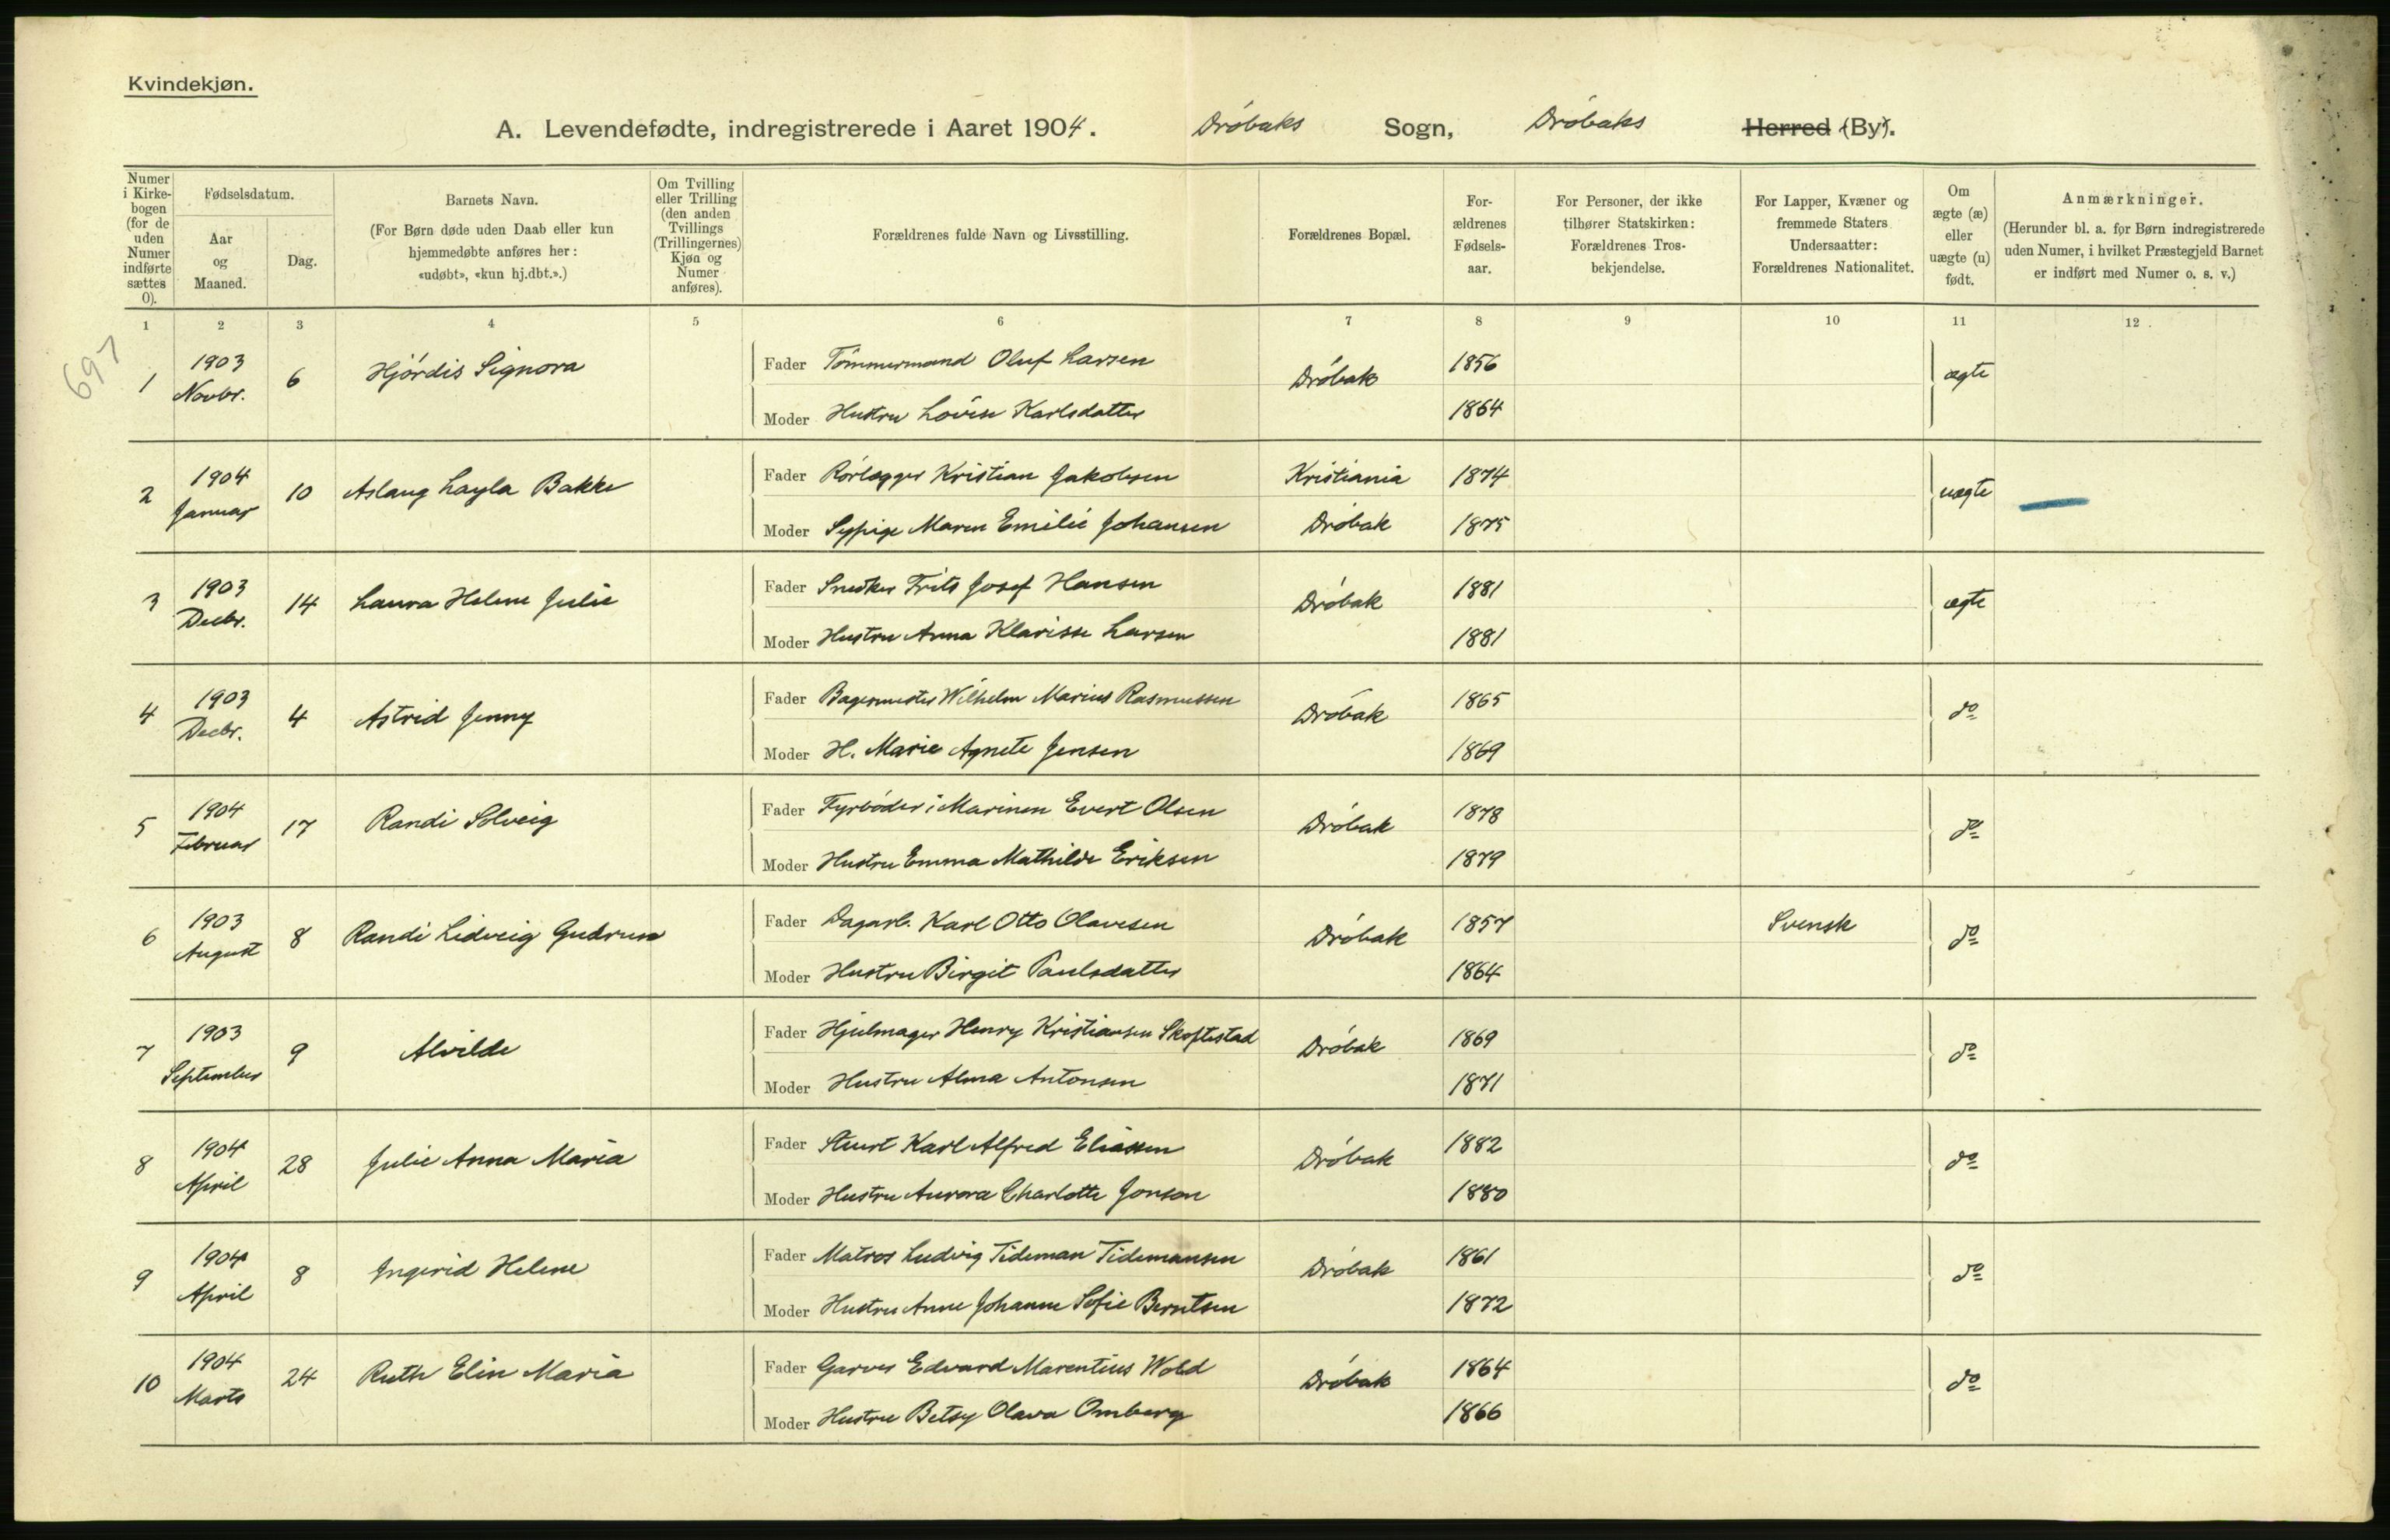 Kvindekjøn.
A. Levendefødte, indregistrerede i Aaret 1904. Drøbaks Sogn, Drøbaks Herred (By).
Numer i Kirke-bogen (for de uden Numer indførte sættes 0).
Fødselsdatum.
Aar og Maaned.
Dag.
Barnets Navn.
(For Børn døde uden Daab eller kun
hjemmedøbte anføres her:
«udøbt», «kun hj.dbt.».)
Om Tvilling
eller Trilling
(den anden
Tvillings
(Trillingernes)
Kjøn og
Numer
anføres).
Forældrenes fulde Navn og Livsstilling.
Forældrenes Bopæl.
For-
ældrenes
Fødsels-
aar.
For Personer, der ikke
tilhører Statskirken:
Forældrenes Tros-
bekjendelse.
For Lapper, Kvæner og
fremmede Staters
Undersaatter:
Forældrenes Nationalitet.
Om
ægte (æ)
eller
uægte (u)
født.
Anmærkninger.
(Herunder bl. a. for Børn indregistrerede
uden Numer, i hvilket Præstegjeld Barnet
er indført med Numer o. s. v.)
1 2 3 4 5 6 7 8 9 10 11 12
697
1 1903 Novbr. 6 Hjórdis Signora
Fader Tómmermand Oluf Larsen Dróbak 1856 ægte
Moder Hustru Lovise Karlsdatter 1864
2 1904 Januar 10 Aslaug Layla Bakke
Fader Rórlægger Kristian Jakobsen Kristiania 1874 uægte
Moder Sypige Maren Emilie Johansen Dróbak 1875
3 1903 Decbr. 14 Laura Helene Julie
Fader Snedker Frits Josef Hansen Dróbak 1881 ægte
Moder Hustru Anna Klarisse Larsen 1881
4 1903 Decbr. 4 Astrid Jenny
Fader Bagermester Wilhelm Marius Rasmussen Dróbak 1865 do
Moder H. Marie Agnete Jensen 1869
5 1904 Februar 17 Randi Solveig
Fader Fyrbóder i Marinen Evert Olsen Dróbak 1878 do
Moder Hustru Emma Mathilde Eriksen 1879
6 1903 August 8 Randi Lidveig Gudrun
Fader Dagarb. Karl Otto Olavesen Dróbak 1857 Svensk do
Moder Hustru Birgit Paulsdatter 1864
7 1903 September 9 Alvilde
Fader Hjulmager Henry Kristiansen Skoftestad Dróbak 1869 do
Moder Hustru Alma Antonsen 1871
8 1904 April 28 Julie Anna Maria
Fader Stuert Karl Alfred Eliassen Dróbak 1882 do
Moder Hustru Aurora Charlotte Jonson 1880
9 1904 April 8 Ingerid Helene
Fader Matros Ludvig Tideman Tidemansen Dróbak 1861 do
Moder Hustru Anne Johanne Sofie Berntsen 1872
10 1904 Marts 24 Ruth Elin Maria
Fader Garver Edvard Marentius Wold Dróbak 1864 do
Moder Hustru Betsy Olava Omberg 1866